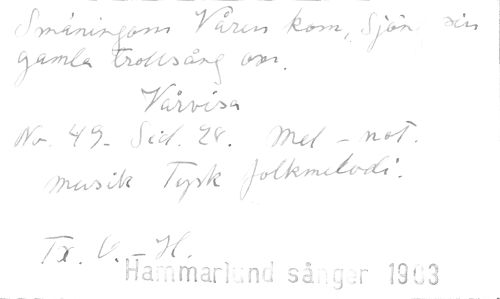 Småningom Våren kom, Sjön sin
gamla trollsång om.
Vårvisa
No. 49- Sid. 28. Mel - not.
musik Tysk folkmelodi.
Tx. V. - H.
Hammarlund sånger 1903